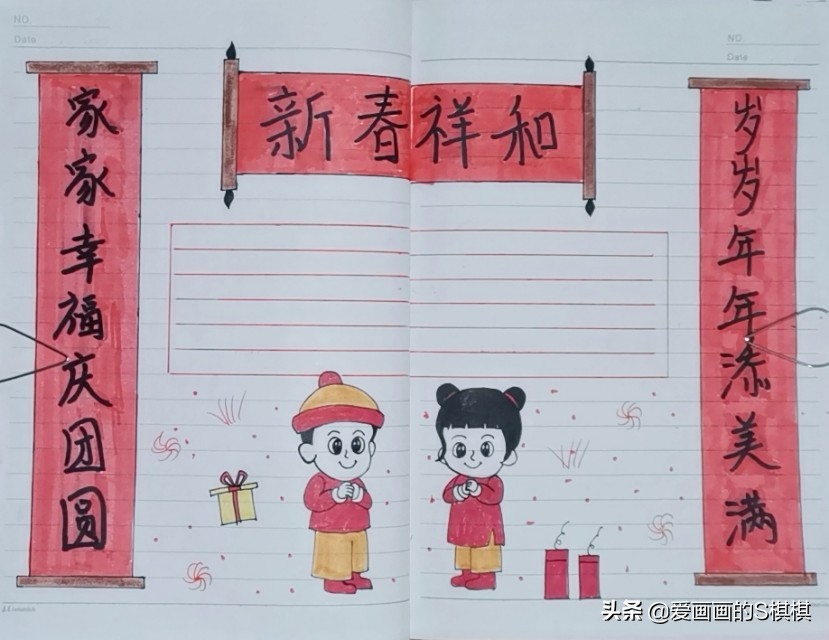 NO.
Date
NO.
Date
新春祥和
家家幸福庆团圆
岁岁年年添美满
头条 @爱画画的S棋棋